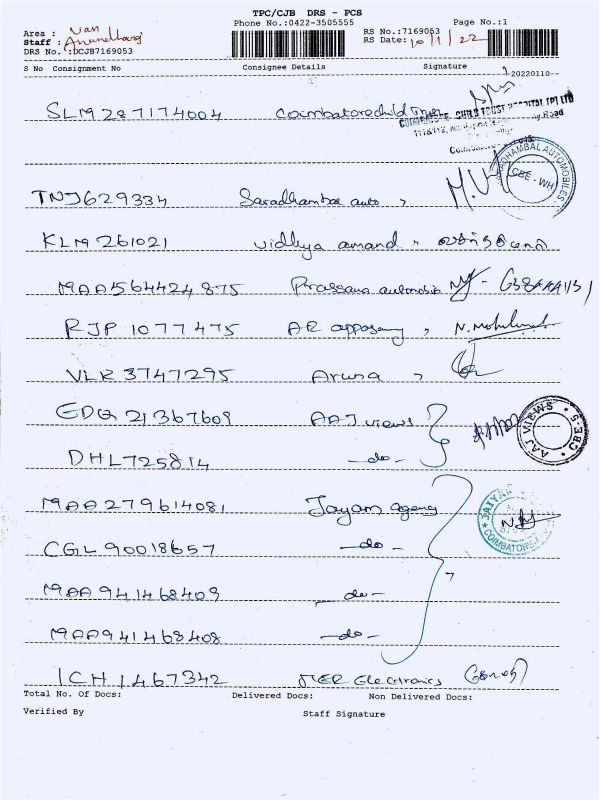 TPC/CJB DRS - PCS
Phone No.:0422-3505555 Page No.:1
Area : Van
Staff :
DRS No.:DCJB7169053
RS No.:7169053
RS Date: 10/1/22
S No Consignment No Consignee Details Signature
20220110--
SLM287174004 Coimbatore child Trust
CHILD TRUST HOSPITAL (P) LTD
TNJ629334 Saradhambal auto
ADHAMBAL AUTOMOBILES
CBE - WH
KLM261021 vidhya anand
MAA564424875 Prassana automobile
RJP1077475 AR N.
VLR3747295 Aruna
EDG21367609 AAJ views
AAJ VIEWS * CBE-5 *
DHL725814 -do-
MAA279614081 Jayam agency
COIMBATORE
CGL90018657 -do-
MAA941468409 -do-
MAA941468408 -do-
ICH1467342 MER Electronics
Total No. Of Docs: Delivered Docs: Non Delivered Docs:
Verified By Staff Signature